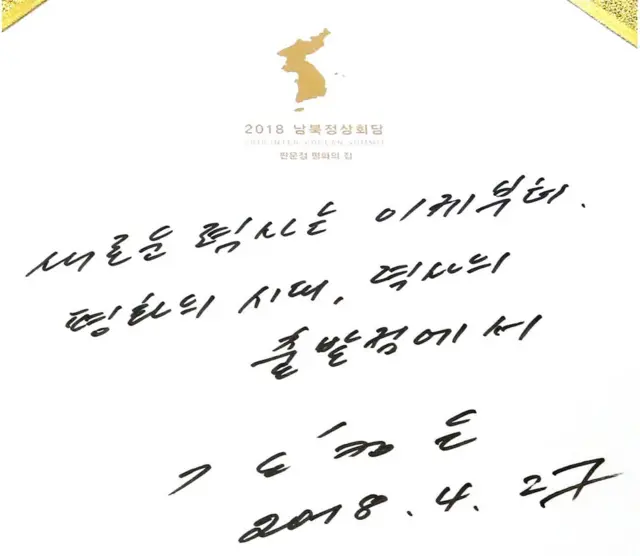 2018 남북정상회담
2018 INTER-KOREAN SUMMIT
판문점 평화의 집
새로운 력사는 이제부터.
평화의 시대, 력사의
출발점에서
김정은
2018. 4. 27